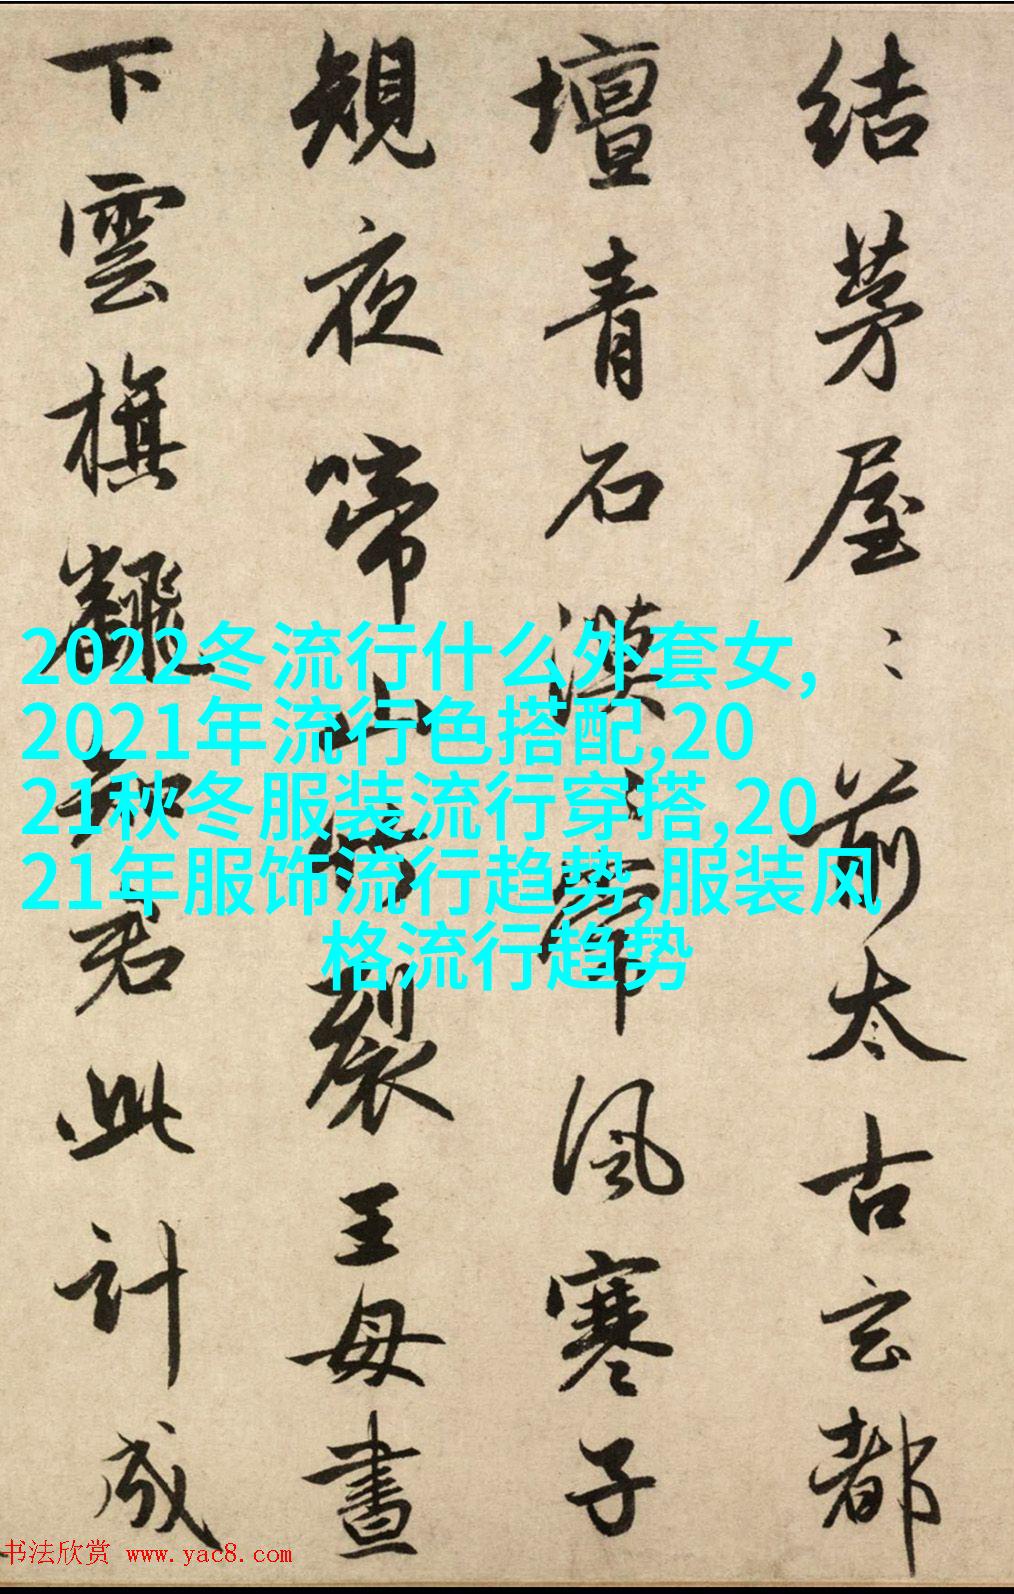 結茅屋〻前太古玄都
壇青石漠〻常風寒子
規夜啼山竹裂王母晝
下雲旗飜知君此計成
2022冬流行什么外套女,
2021年流行色搭配,20
21秋冬服装流行穿搭,20
21年服饰流行趋势,服装风
格流行趋势
书法欣赏 www.yac8.com